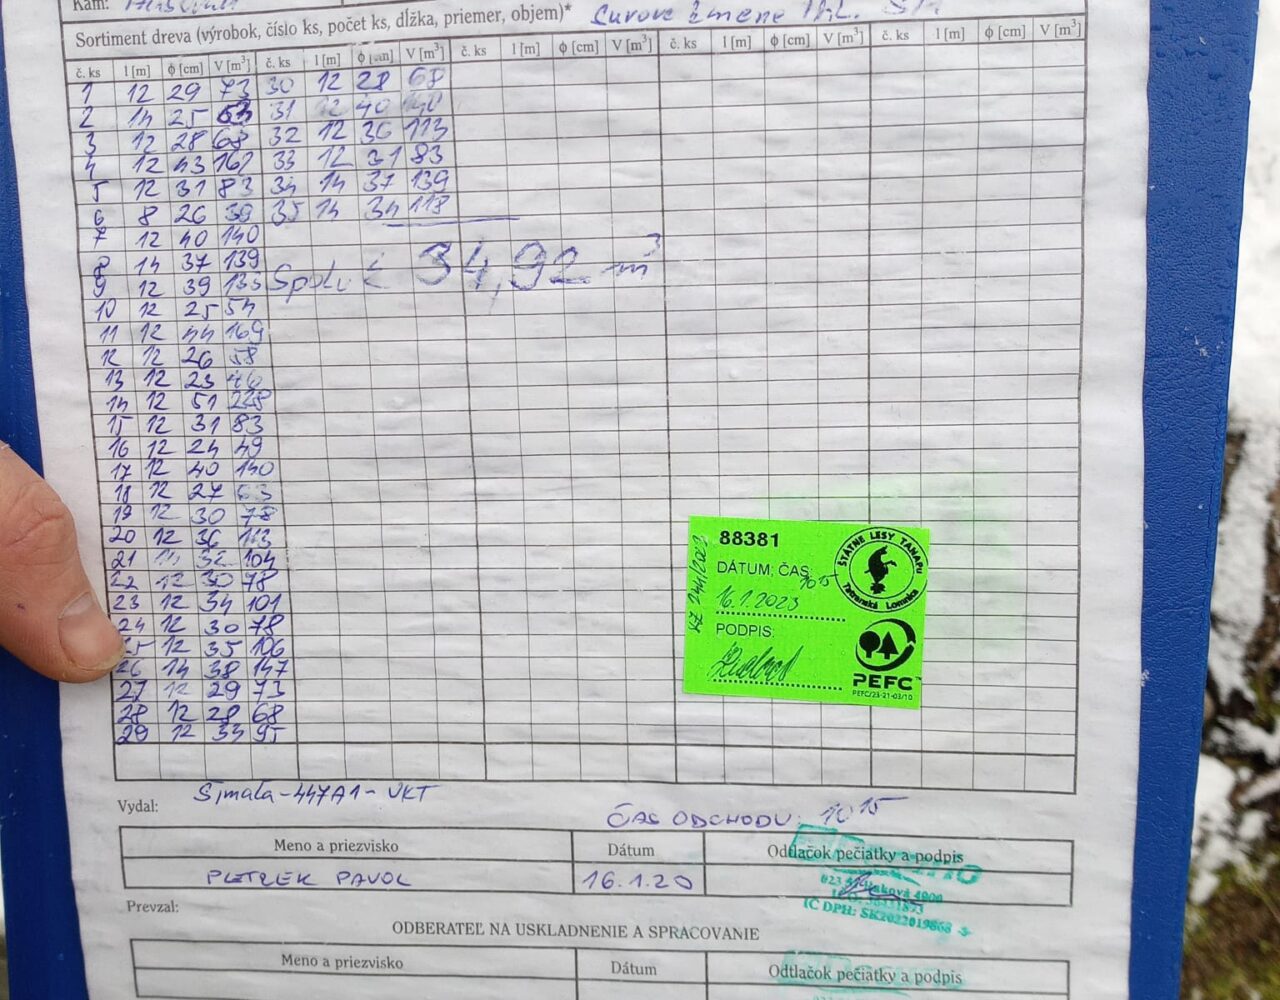 Kam:
Sortiment dreva (výrobok, číslo ks, počet ks, dĺžka, priemer, objem)* Surové
č. ks l [m] ϕ [cm] V [m³] č. ks l [m] ϕ [cm] V [m³] č. ks l [m] ϕ [cm] V [m³] č. ks l [m] ϕ [cm] V [m³] č. ks l [m] ϕ [cm]
1 12 29 73 30 12 28 68
2 14 25 31 12 40 140
3 12 28 68 32 12 36 113
4 12 43 162 33 12 31 83
5 12 31 83 34 14 37 139
6 8 26 39 35 14 34 118
7 12 40 140
8 14 37 139
9 12 39 133 Spolu č 34,92 m³
10 12 25 54
11 12 44 169
12 12 26 58
13 12 23 46
14 12 51 228
15 12 31 83
16 12 24 49
17 12 40 140
18 12 27 63
19 12 30 78
20 12 36 113
21 14 32 104
22 12 30 78
23 12 34 101
24 12 30 78
25 12 35 106
26 14 38 147
27 12 29 73
28 12 28 68
29 12 33 95
88381
ŠTÁTNE LESY TANAPu
Tatranská Lomnica
DÁTUM, ČAS 10 15
16.1.2023
PODPIS:
PEFC
PEFC/23-21-03/10
Vydal: Šimala-447A1-UKT
ČAS ODCHODU: 10 15
Meno a priezvisko Dátum Odtlačok pečiatky a podpis
PLETZEK PAVOL 16.1.20
IČ DPH: SK2022019868
Prevzal:
ODBERATEĽ NA USKLADNENIE A SPRACOVANIE
Meno a priezvisko Dátum Odtlačok pečiatky a podpis